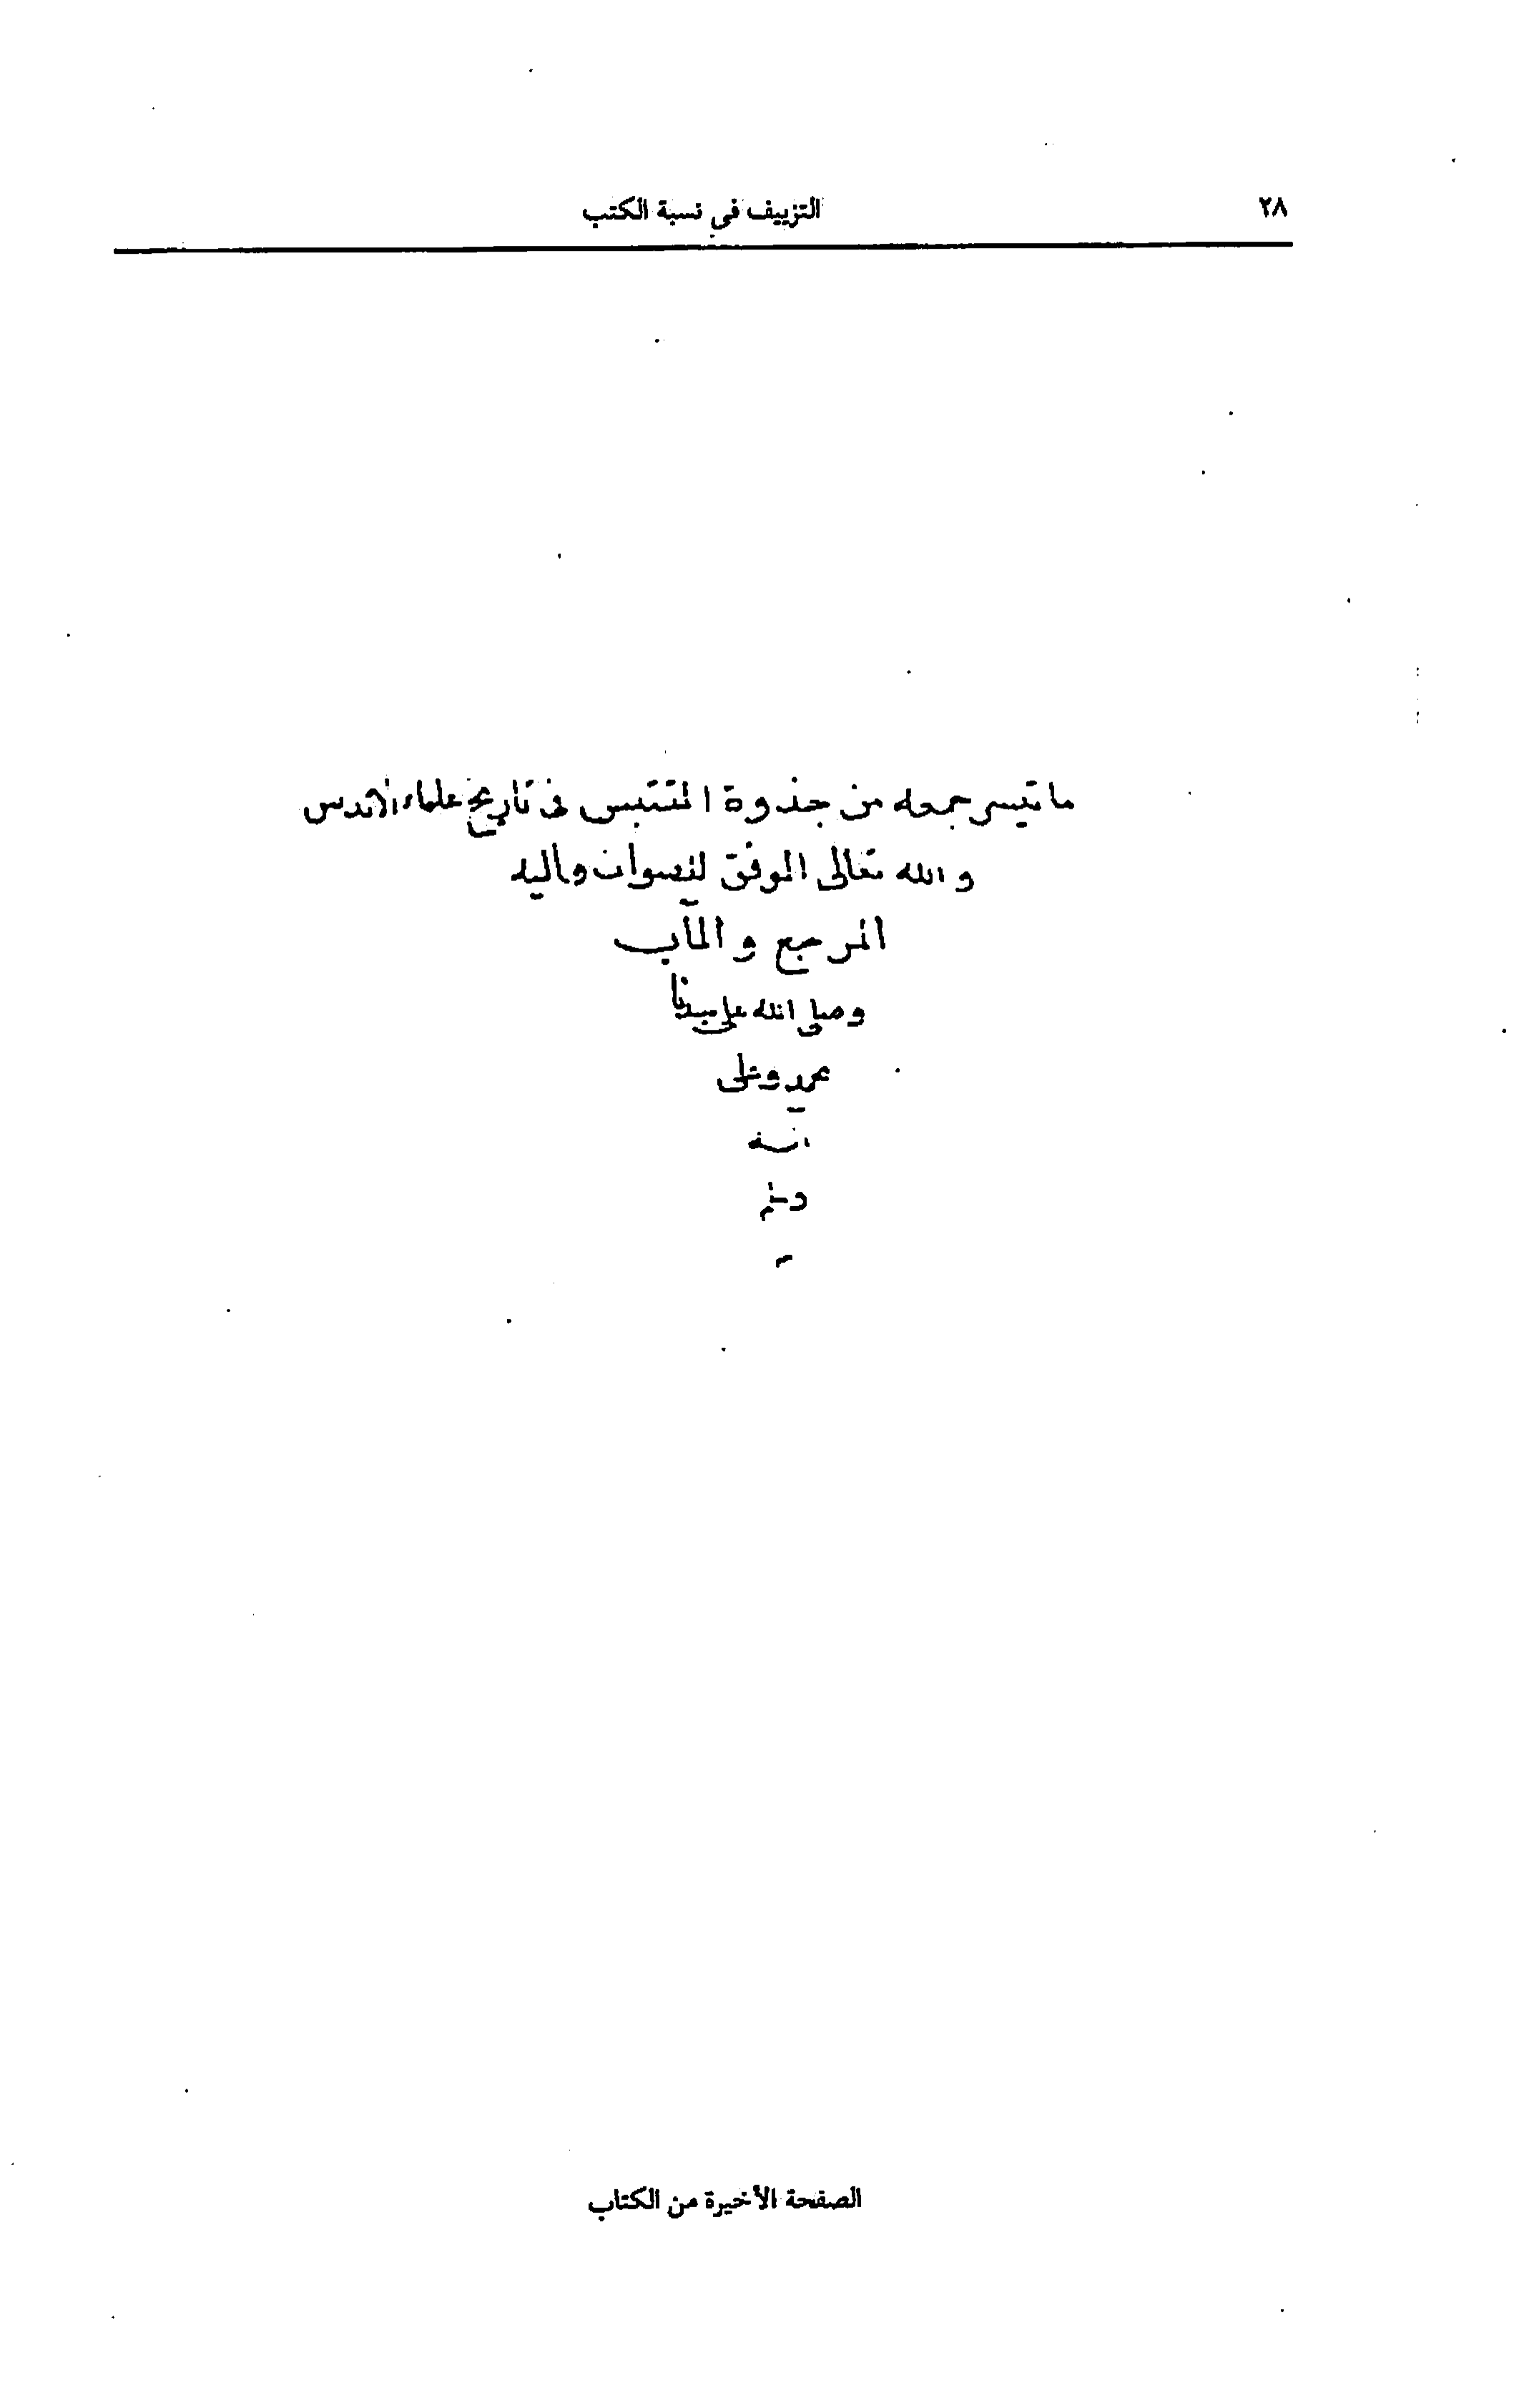 ٢٨
التزييف في نسبة الكتب
ما تيسر جمعه من جذوة المقتبس في تاريخ علماء الاندس
والله تعالى الموفق للصواب واليه
المرجع والمآب
وصلى الله على سيدنا
محمد وعلى
اله
وسلم
م
الصفحة الأخيرة من الكتاب